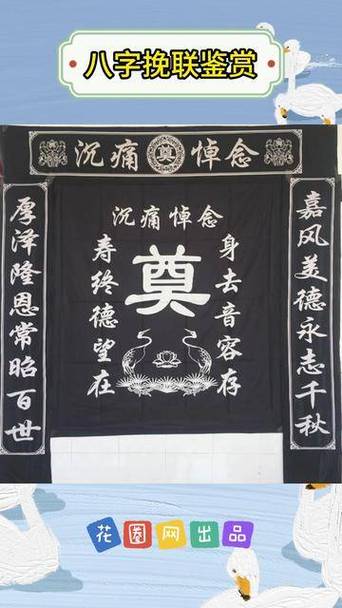 八字挽联鉴赏
沉痛奠悼念
嘉风美德永志千秋
沉痛悼念
身去音容存
奠
寿终德望在
厚泽隆恩常昭百世
花圈网出品